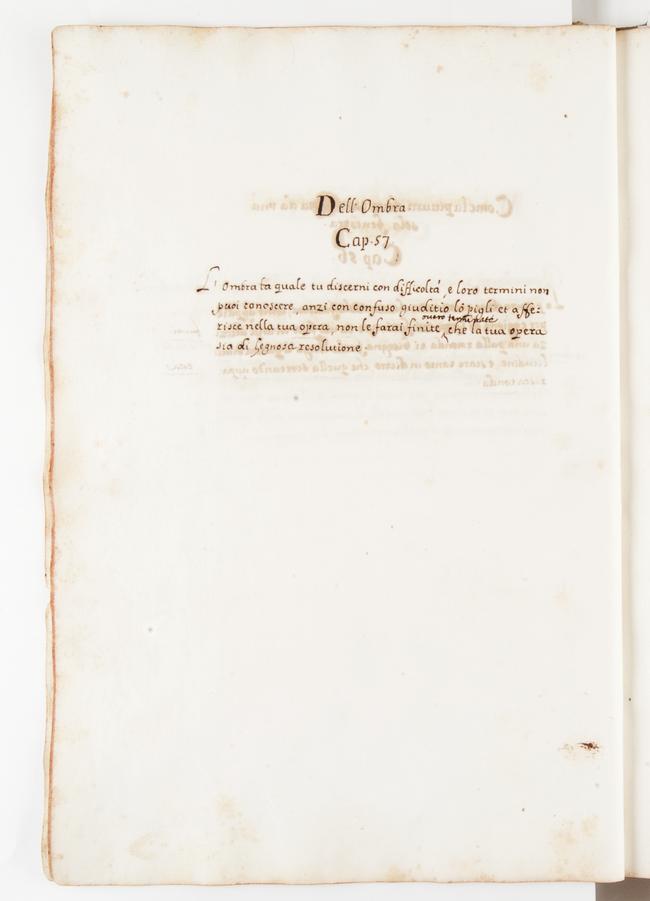 Dell' Ombra
Cap. 57
L' Ombra la quale tu discerni con difficoltà, e loro termini non
puoi conoscere, anzi con confuso giuditio lo pigli et affe=
risce nella tua opera, non le farai finite, che la tua opera
overo terminate
sia di legnosa resolutione